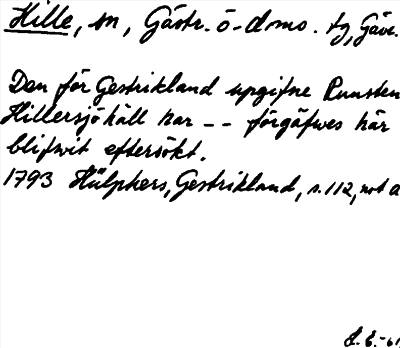 Hille, sn, Gästr. ö-dmo. tg, Gävl.
Den för Gestrikland upgifne Runsten
Hillersjö häll har -- förgäfwes här
blifwit eftersökt.
1793 Hülphers, Gestrikland, s. 112, not a
S.E.-61